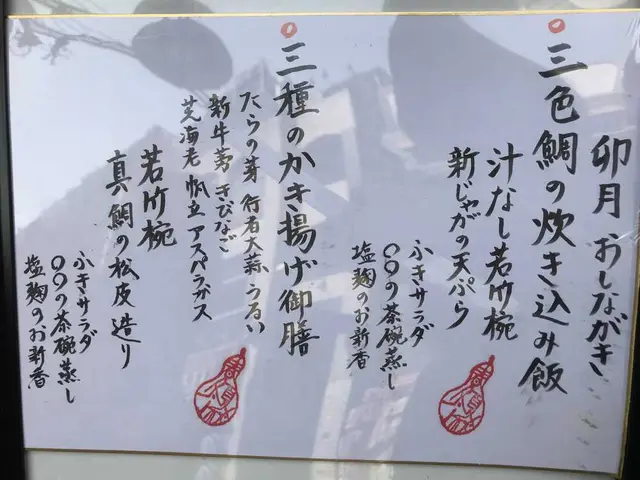 卯月 おしながき
三色鯛の炊き込み飯
汁なし若竹椀
新じゃがの天ぷら
ふきサラダ
〇〇の茶碗蒸し
塩麹のお新香
三種のかき揚げ御膳
たらの芽 行者大蒜 うるい
新牛蒡 きびなご
芝海老 帆立 アスパラガス
若竹椀
真鯛の松皮造り
ふきサラダ
〇〇の茶碗蒸し
塩麹のお新香